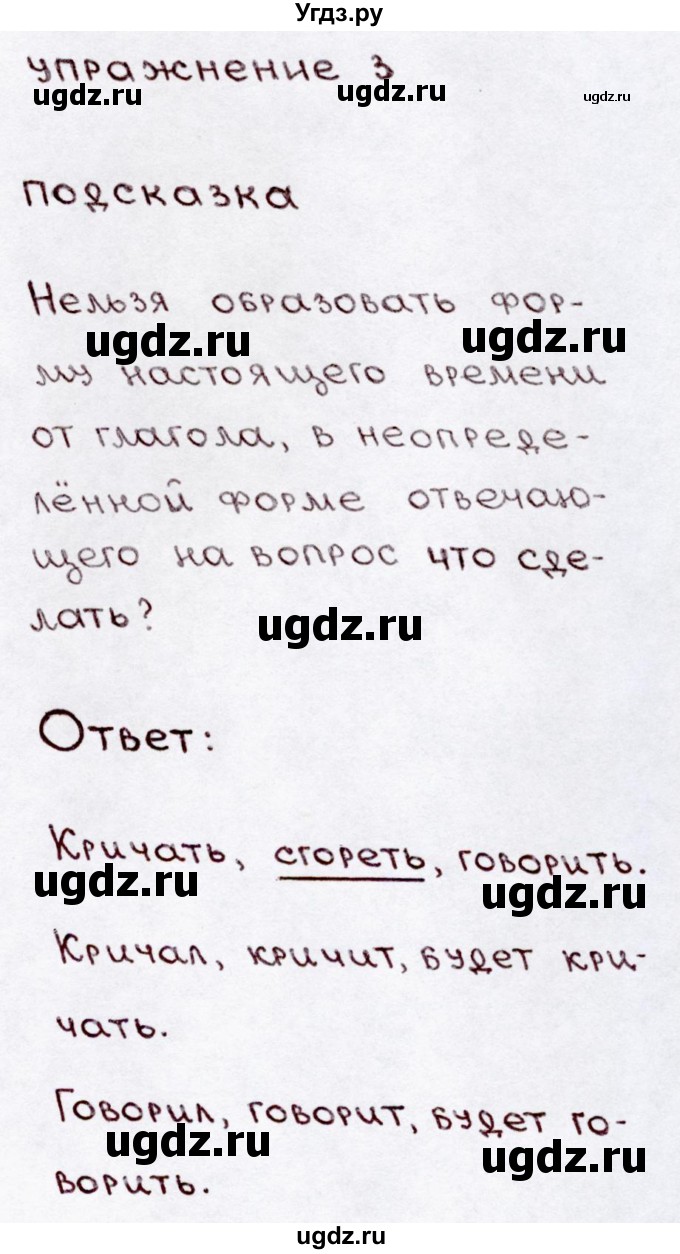 Угдз.ру
упражнение 3
ugdz.ru ugdz.ru ugdz.ru
подсказка
Нельзя образовать фор-
ugdz.ru ugdz.ru
му настоящего времени
от глагола, в неопреде-
лённой форме отвечаю-
щего на вопрос что сде-
лать?
ugdz.ru
Ответ:
Кричать, сгореть, говорить.
ugdz.ru ugdz.ru
Кричал, кричит, будет кри-
чать.
Говорил, говорит, будет го-
ugdz.ru ugdz.ru
ворить.
ugdz.ru